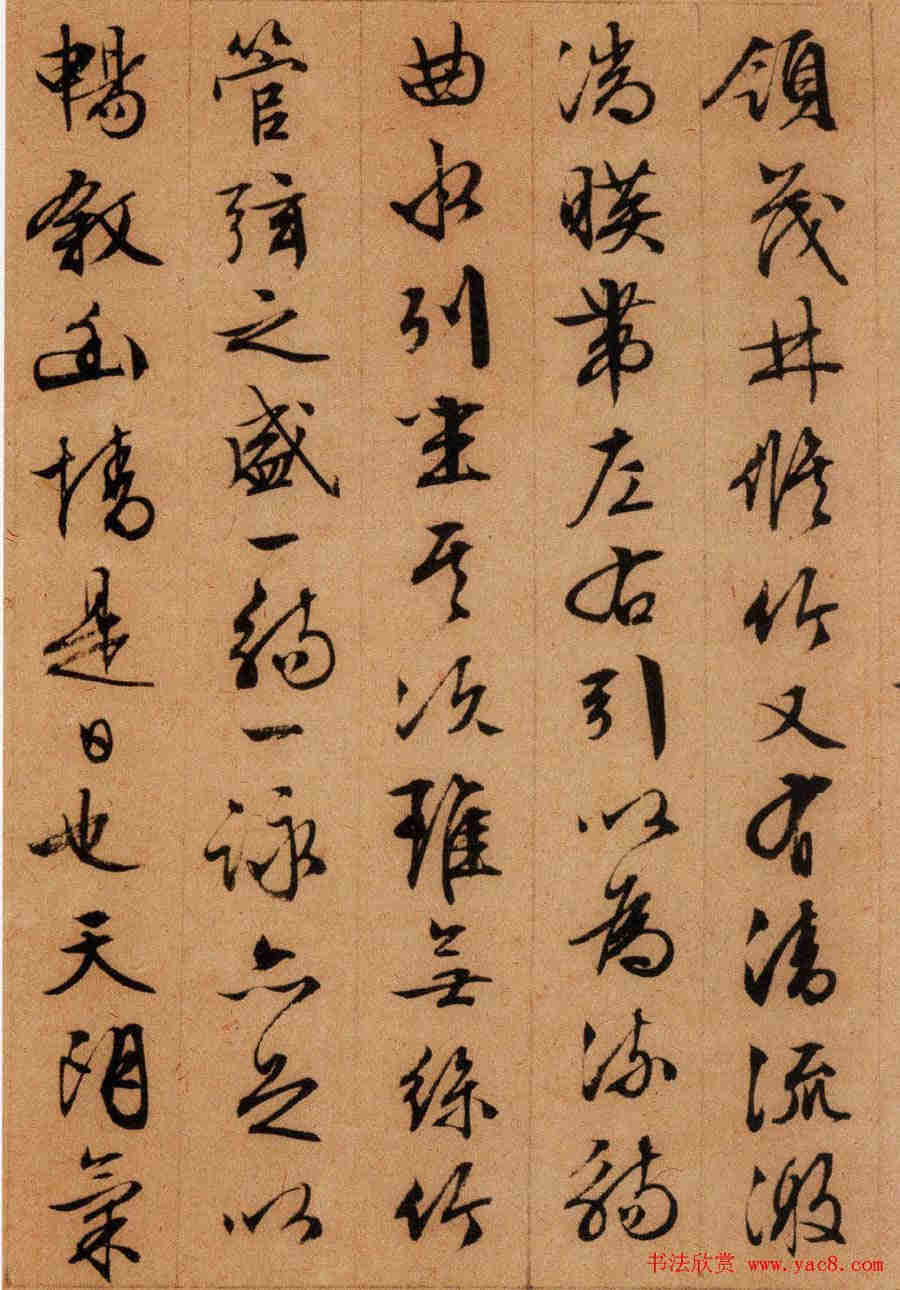 領茂林脩竹又有清流激
湍暎帶左右引以為流觴
曲水列坐其次雖無絲竹
管弦之盛一觴一詠亦足以
暢敘幽情是日也天朗氣
书法欣赏 www.yac8.com